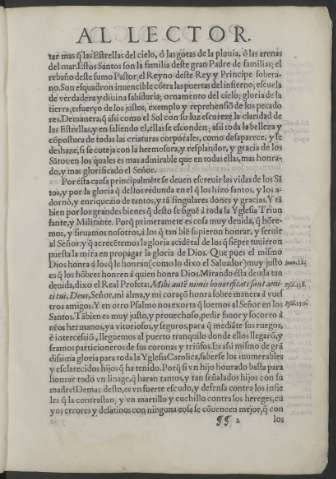 AL LECTOR.
tar mas q̃ las Estrellas del cielo, ò las gotas de la pluuia, ò las arenas
del mar. Estos Santos son la familia deste gran Padre de familias; el
rebaño deste sumo Pastor, el Reyno deste Rey y Principe sobera-
no. Son esquadron inuencible cõtra las puertas del infierno, escuela
de verdadera y diuina sabiduria; ornamento del cielo; gloria de la
tierra, esfuerço de los justos, exemplo y reprehensiõ de los pecado
res. Demanera, q̃ asi como el Sol con su luz escurece la claridad de
las Estrellas, y en saliendo el, ellas se esconden; asi toda la belleza y
cõpostura de todas las criaturas corporales, como desaparece, y se
deshaze, si se coteja con la hermosura, y resplandor, y gracia de los
Sãtos en los quales es mas admirable que en todas ellas, mas honra-
do, y mas glorificado el Señor.
Por esta causa principalmẽte se deuen escreuir las vidas de los Sã
tos, y por la gloria q̃ dellos redunda en el q̃ los hizo santos, y los a-
dornò, y enriquezio de tantos, y tã singulares dones y gracias. Y tã
bien por los grandes bienes q̃ desto se sigue à toda la Yglesia Triun
fante, y Militante. Porq̃ primeramẽte es cosa muy deuida, q̃ hõre-
mos, y siruamos nosotros, à los q̃ tan biẽ supieron honrar, y seruir
al Señor: y q̃ acrecẽtemos la gloria acidẽtal de los q̃ siẽpre tuuieron
puesta la mira en propagar la gloria de Dios. Que pues el mismo
Dios honra à los q̃ le honran (como lo dixo el Saluador) muy justo
es q̃ los hõbres honren à quien honra Dios. Mirando esta deuda tan
deuida, dixo el Real Profeta, Mihi autẽ nimis honorificati sunt ami-
ci tui, Deus, Señor, mi alma, y mi coraçõ honra sobre manera à vues
tros amigos. Y en otro Psalmo nos exorta q̃ loemos al Señor en los
Santos. Tãbien es muy justo, y prouechoso, pedir fauor y socorro à
nr̃os hermanos, ya vitoriosos, y seguros, para q̃ mediãte sus ruegos,
è intercessiõ, lleguemos al puerto tranquilo donde ellos llegarõ, y
seamos participioneros de sus coronas y triũfos. Es asi mismo de grã
disima gloria para toda la Yglesia Catolica, saberse los inumerables
y esclarecidos hijos q̃ ha tenido. Porq̃ si vn hijo honrado basta para
honrar todo vn linage, q̃ haran tantos, y tan señalados hijos con su
madre? Demas desto, es vn fuerte escudo, y defensa contra los infie
les q̃ la contrastan; y vn martillo y cuchillo contra los hereges, cu
yos errores y desatinos con ninguna cosa se cõuencen mejor, q̃ con
¶¶ 2 los